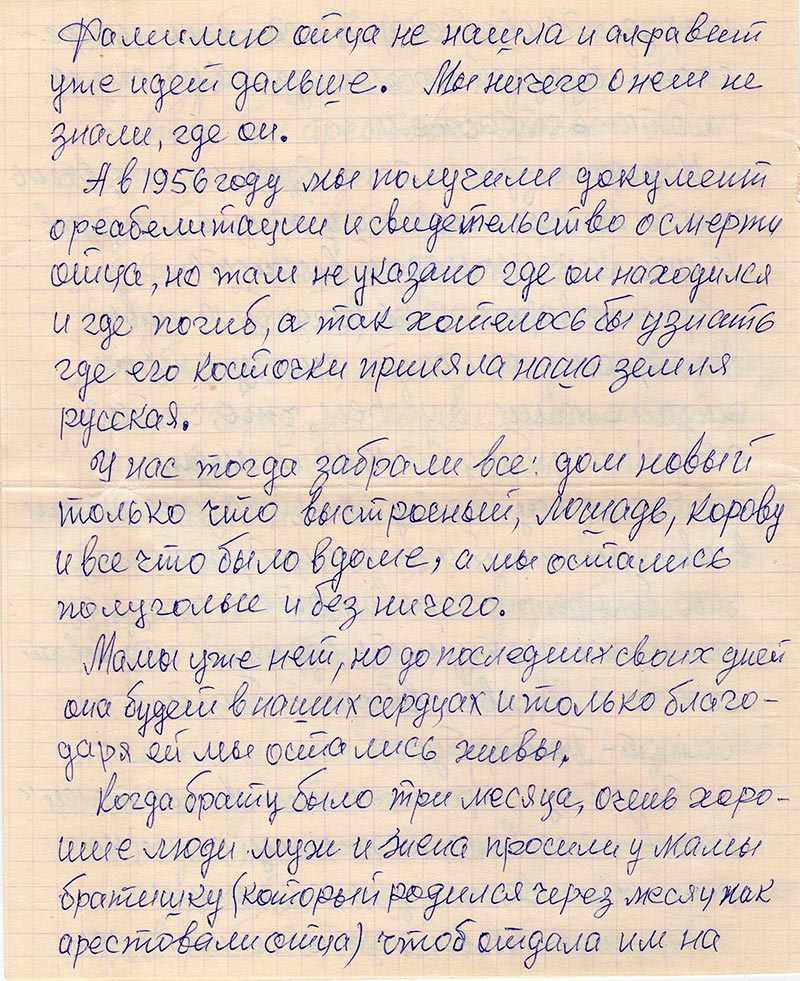 Фамилию отца не нашла и алфавит
уже идет дальше. Мы ничего о нем не
знали, где он.
А в 1956 году мы получили документ
о реабелитации и свидетельство о смерти
отца, но там не указано где он находился
и где погиб, а так хотелось бы узнать
где его косточки приняла наша земля
русская.
У нас тогда забрали все: дом новый
только что выстроеный, лошадь, корову
и все что было в доме, а мы остались
полуголые и без ничего.
Мамы уже нет, но до последних своих дней
она будет в наших сердцах и только благо-
даря ей мы остались живы.
Когда брату было три месяца, очень хоро-
шие люди муж и жена просили у мамы
братишку (который родился через месяц как
арестовали отца) чтоб отдала им на